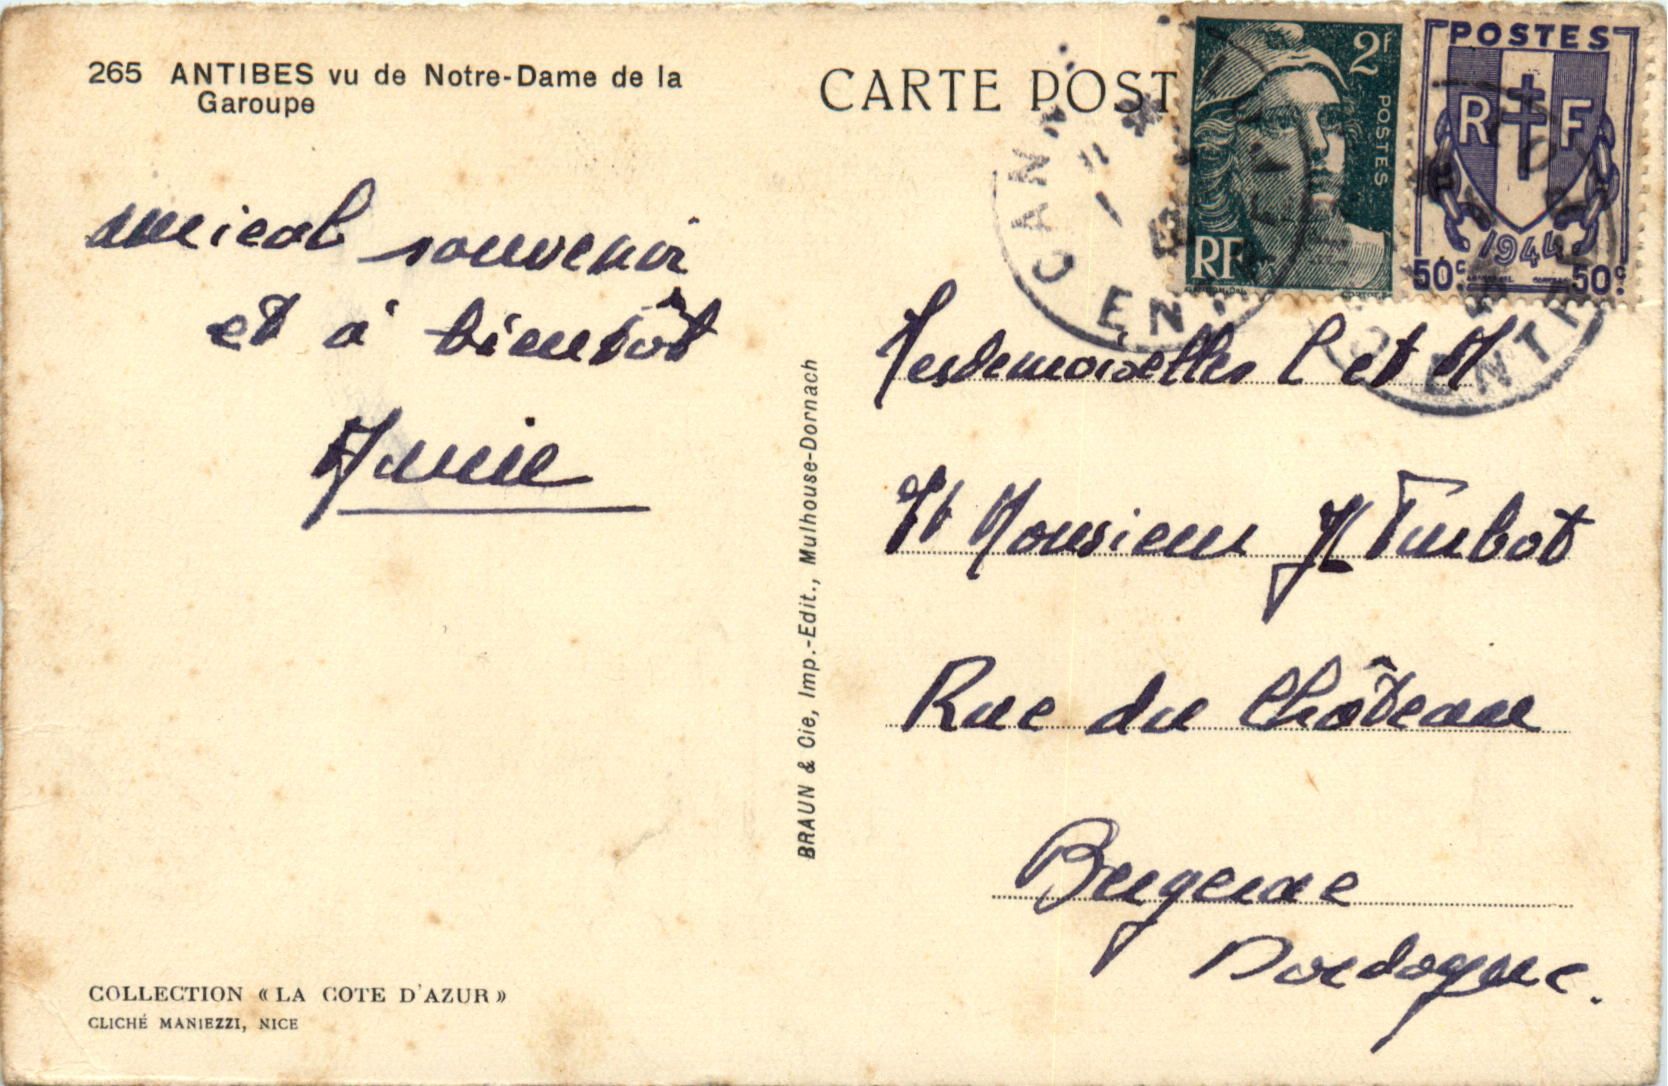 265 ANTIBES vu de Notre-Dame de la
Garoupe
amical souvenir
et à bientôt
Annie
COLLECTION « LA COTE D'AZUR »
CLICHÉ MANIEZZI, NICE
BRAUN & Cie, Imp.-Edit., Mulhouse-Dornach
CARTE POST
2F
POSTES
RF
POSTES
R F
1944
50c 50c
Mesdemoiselles L et M
Et Monsieur H Turbot
Rue du Château
Bugeaue
Dordogne.